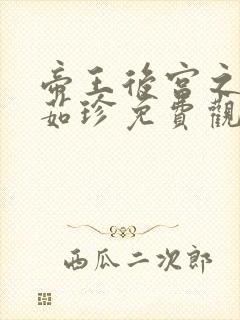 帝王後宮之
如珍免費觀
西瓜二次郎